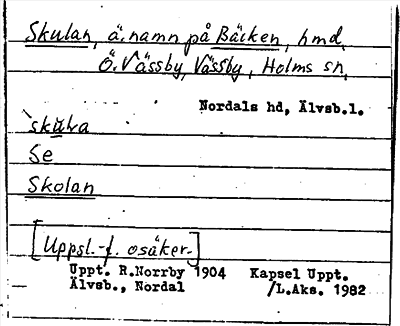 Skulan, ä. namn på Bäcken, hmd,
Ö. Vässby, Vässby, Holms sn,
Nordals hd, Älvsb.l.
`skŭla
Se
Skolan
[Uppsl.-f. osäker.]
Uppt. R.Norrby 1904 Kapsel Uppt.
Älvsb., Nordal /L.Aks. 1982